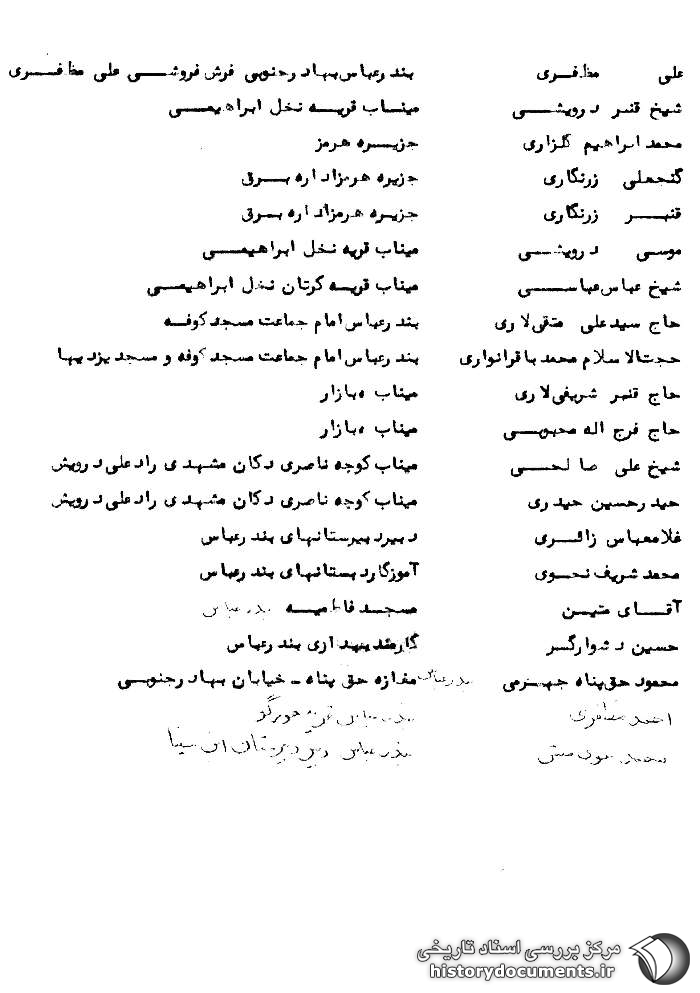 علی مظفری بندرعباس بهادر جنوبی فرش فروشی علی مظفری
شیخ قنبر درویشی میناب قریه نخل ابراهیمی
محمد ابراهیم گلزاری جزیره هرمز
گنجعلی زرنگاری جزیره هرمز اداره برق
قنبر زرنگاری جزیره هرمز اداره برق
موسی درویشی میناب قریه نخل ابراهیمی
شیخ عباس عباسی میناب قریه کرتان نخل ابراهیمی
حاج سید علی متقی لاری بندرعباس امام جماعت مسجد کوفه
حجت الاسلام محمد باقر انواری بندرعباس امام جماعت مسجد کوفه و مسجد یزدیها
حاج قنبر شریفی لاری میناب ه بازار
حاج فرج اله محبوبی میناب ه بازار
شیخ علی صالحی میناب کوچه ناصری دکان مشهدی رادعلی درویش
حیدر حسین حیدری میناب کوچه ناصری دکان مشهدی رادعلی درویش
غلامعباس زائری دبیر دبیرستانهای بندرعباس
محمد شریف نحوی آموزگار دبستانهای بندرعباس
آقای متین مسجد فاطمیه بندرعباس
حسین دشوارگسر کارمند بهداری بندرعباس
محمود حق پناه جهرمی بندرعباس مغازه حق پناه - خیابان بهادر جنوبی
احمد مظفری بندرعباس قریه خورگو
محمد بندرعباس دبیر دبیرستان ابن سینا
مرکز بررسی اسناد تاریخی
historydocuments.ir